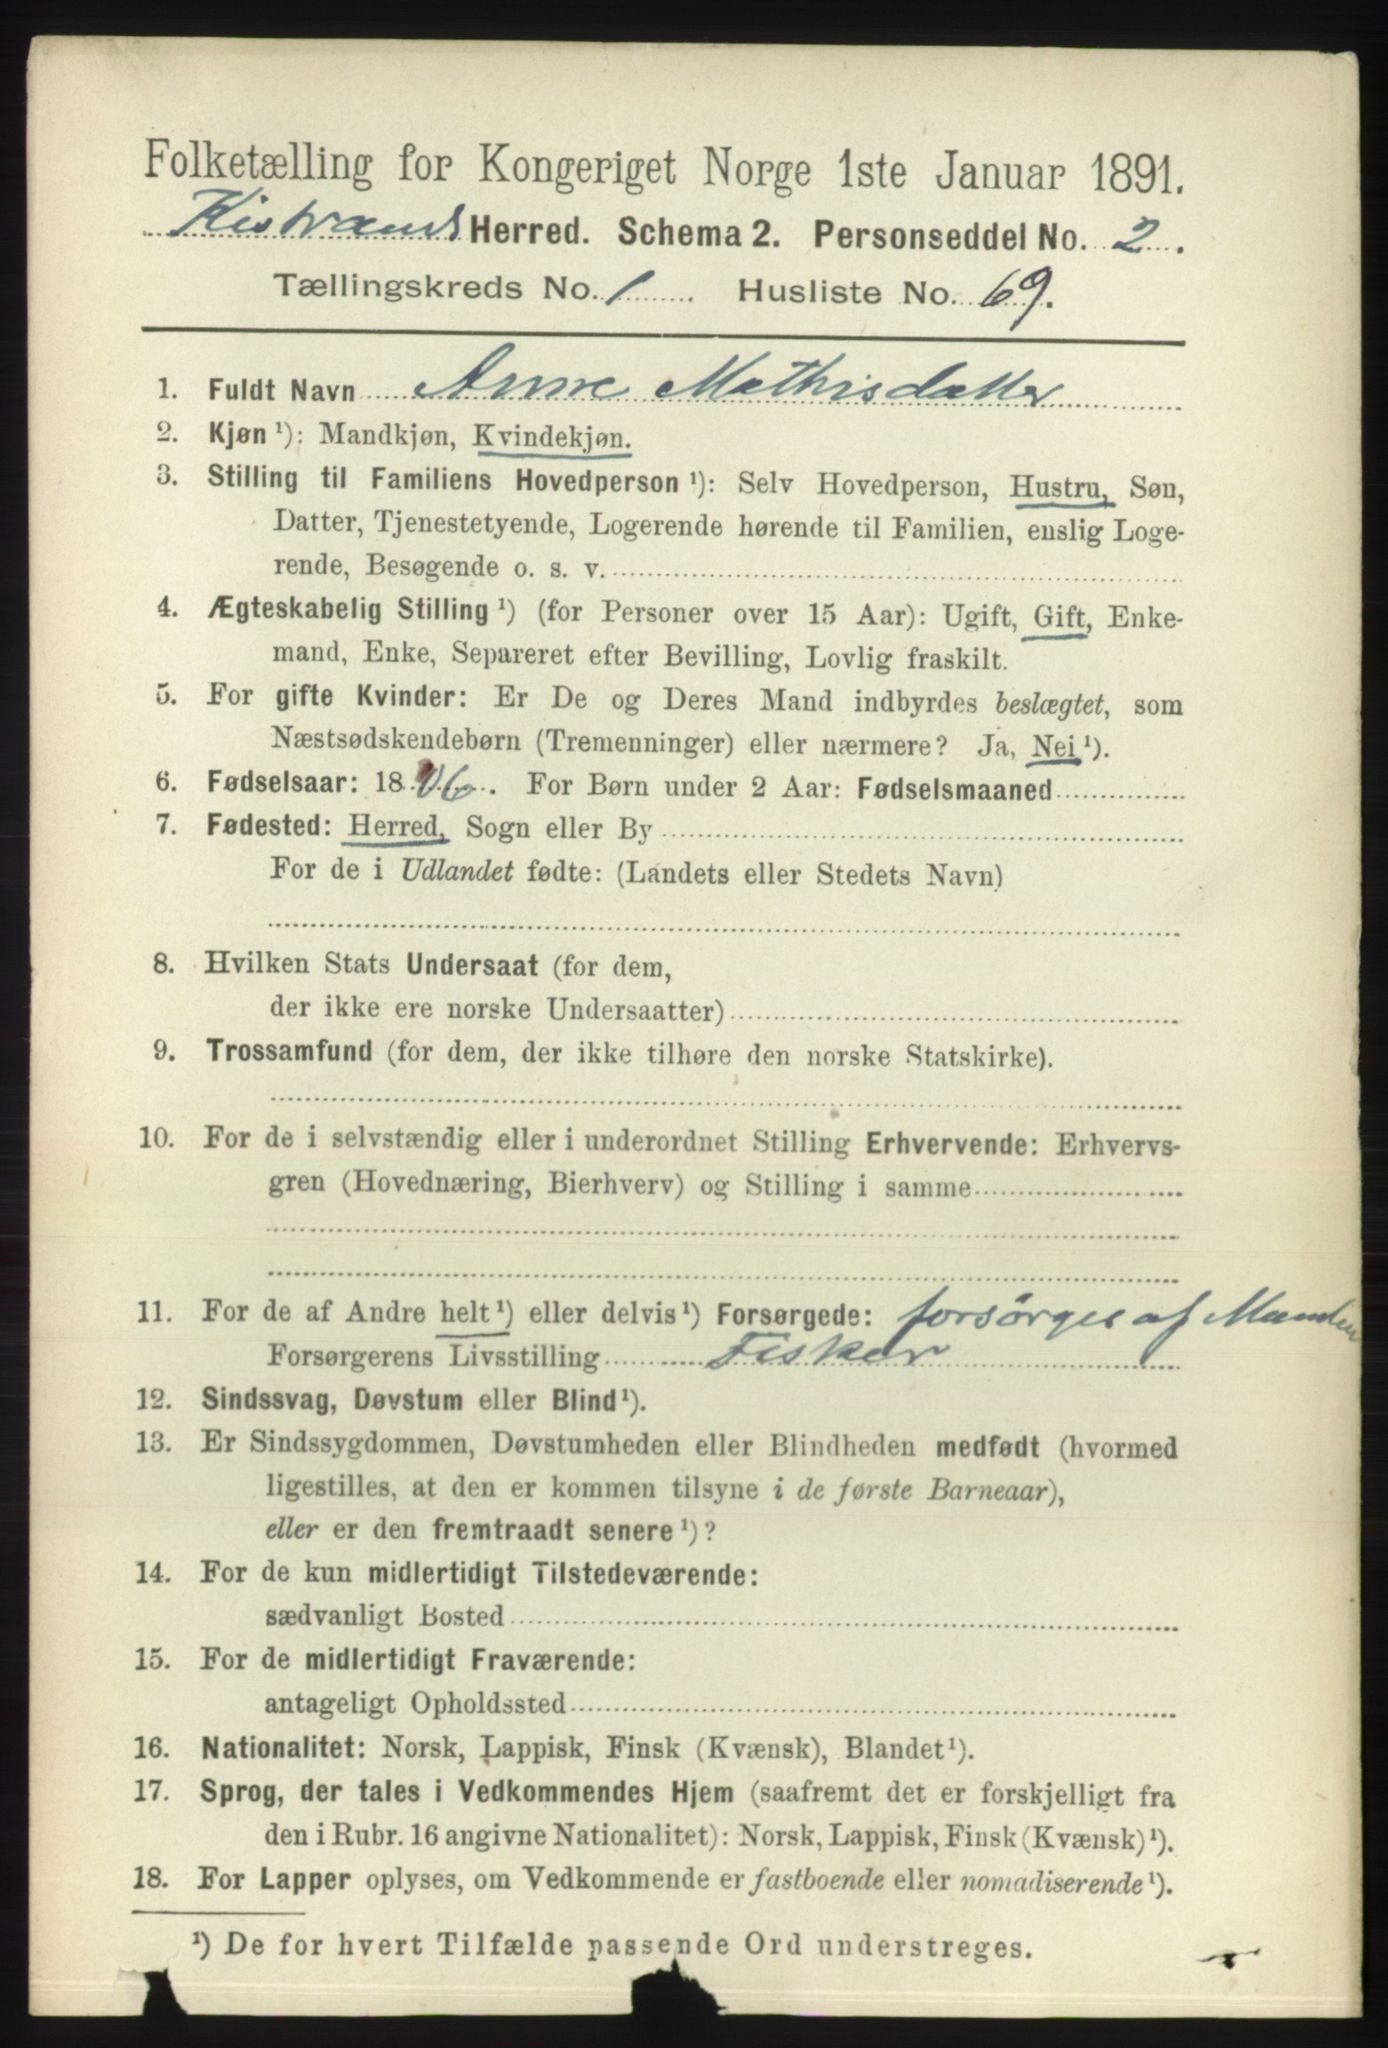 Folketælling for Kongeriget Norge 1ste Januar 1891.
Kistrand Herred. Schema 2. Personseddel No. 2.
Tællingskreds No. 1 Husliste No. 69.
1. Fuldt Navn Anne Mathisdatter
2. Kjøn ¹): Mandkjøn, Kvindekjøn.
3. Stilling til Familiens Hovedperson ¹): Selv Hovedperson, Hustru, Søn,
Datter, Tjenestetyende, Logerende hørende til Familien, enslig Loge-
rende, Besøgende o. s. v.
4. Ægteskabelig Stilling ¹) (for Personer over 15 Aar): Ugift, Gift, Enke-
mand, Enke, Separeret efter Bevilling, Lovlig fraskilt.
5. For gifte Kvinder: Er De og Deres Mand indbyrdes beslægtet, som
Næstsødskendebørn (Tremenninger) eller nærmere? Ja, Nei ¹).
6. Fødselsaar: 18 . For Børn under 2 Aar: Fødselsmaaned
7. Fødested: Herred, Sogn eller By
For de i Udlandet fødte: (Landets eller Stedets Navn)
8. Hvilken Stats Undersaat (for dem,
der ikke ere norske Undersaatter)
9. Trossamfund (for dem, der ikke tilhøre den norske Statskirke).
10. For de i selvstændig eller i underordnet Stilling Erhvervende: Erhvervs-
gren (Hovednæring, Bierhverv) og Stilling i samme
11. For de af Andre helt ¹) eller delvis ¹) Forsørgede: forsørges af Manden
Forsørgerens Livsstilling Fisker
12. Sindssvag, Døvstum eller Blind ¹).
13. Er Sindssygdommen, Døvstumheden eller Blindheden medfødt (hvormed
ligestilles, at den er kommen tilsyne i de første Barneaar),
eller er den fremtraadt senere ¹)?
14. For de kun midlertidigt Tilstedeværende:
sædvanligt Bosted
15. For de midlertidigt Fraværende:
antageligt Opholdssted
16. Nationalitet: Norsk, Lappisk, Finsk (Kvænsk), Blandet ¹).
17. Sprog, der tales i Vedkommendes Hjem (saafremt det er forskjelligt fra
den i Rubr. 16 angivne Nationalitet): Norsk, Lappisk, Finsk (Kvænsk) ¹).
18. For Lapper oplyses, om Vedkommende er fastboende eller nomadiserende ¹).
¹) De for hvert Tilfælde passende Ord understreges.